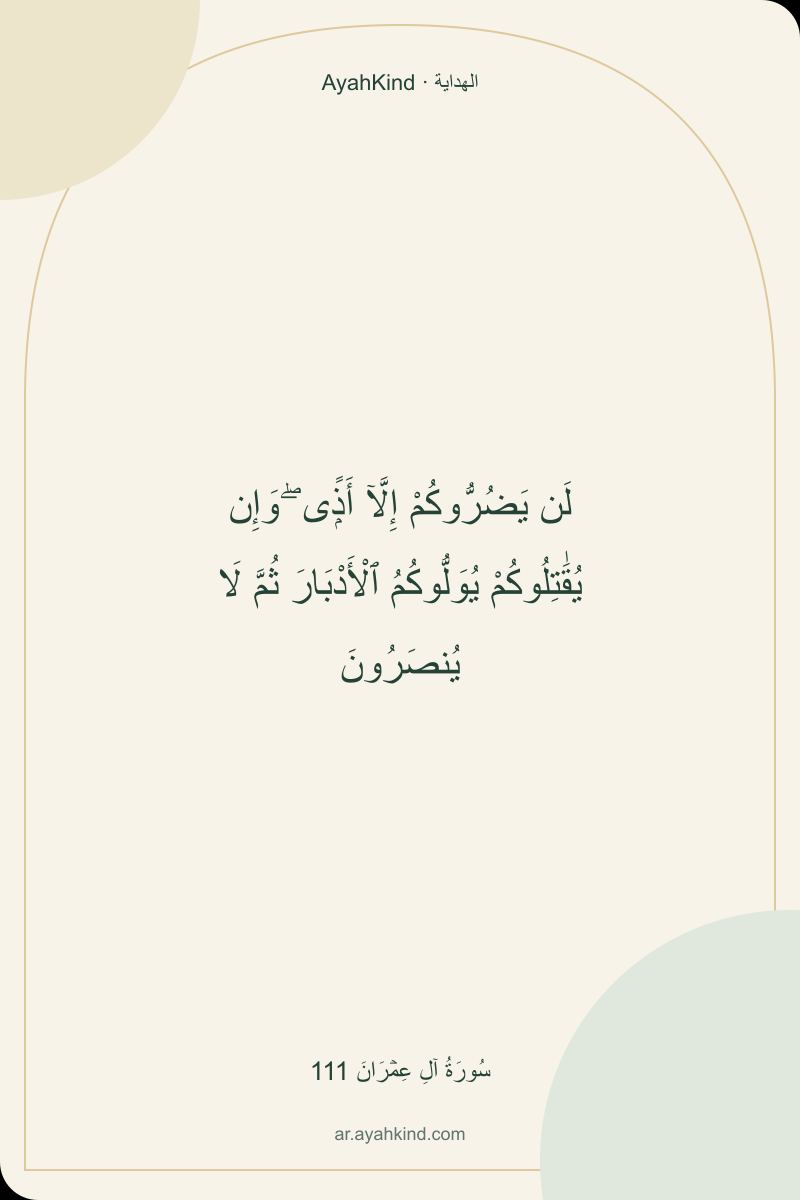 AyahKind · الهداية
لَن يَضُرُّوكُمْ إِلَّآ أَذًۭى ۖ وَإِن
يُقَٰتِلُوكُمْ يُوَلُّوكُمُ ٱلْأَدْبَارَ ثُمَّ لَا
يُنصَرُونَ
سُورَةُ آلِ عِمۡرَانَ 111
ar.ayahkind.com